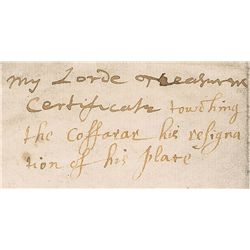 My Lorde Treasurer
Certificate towching
the Coffarar his resigna
tion of his place